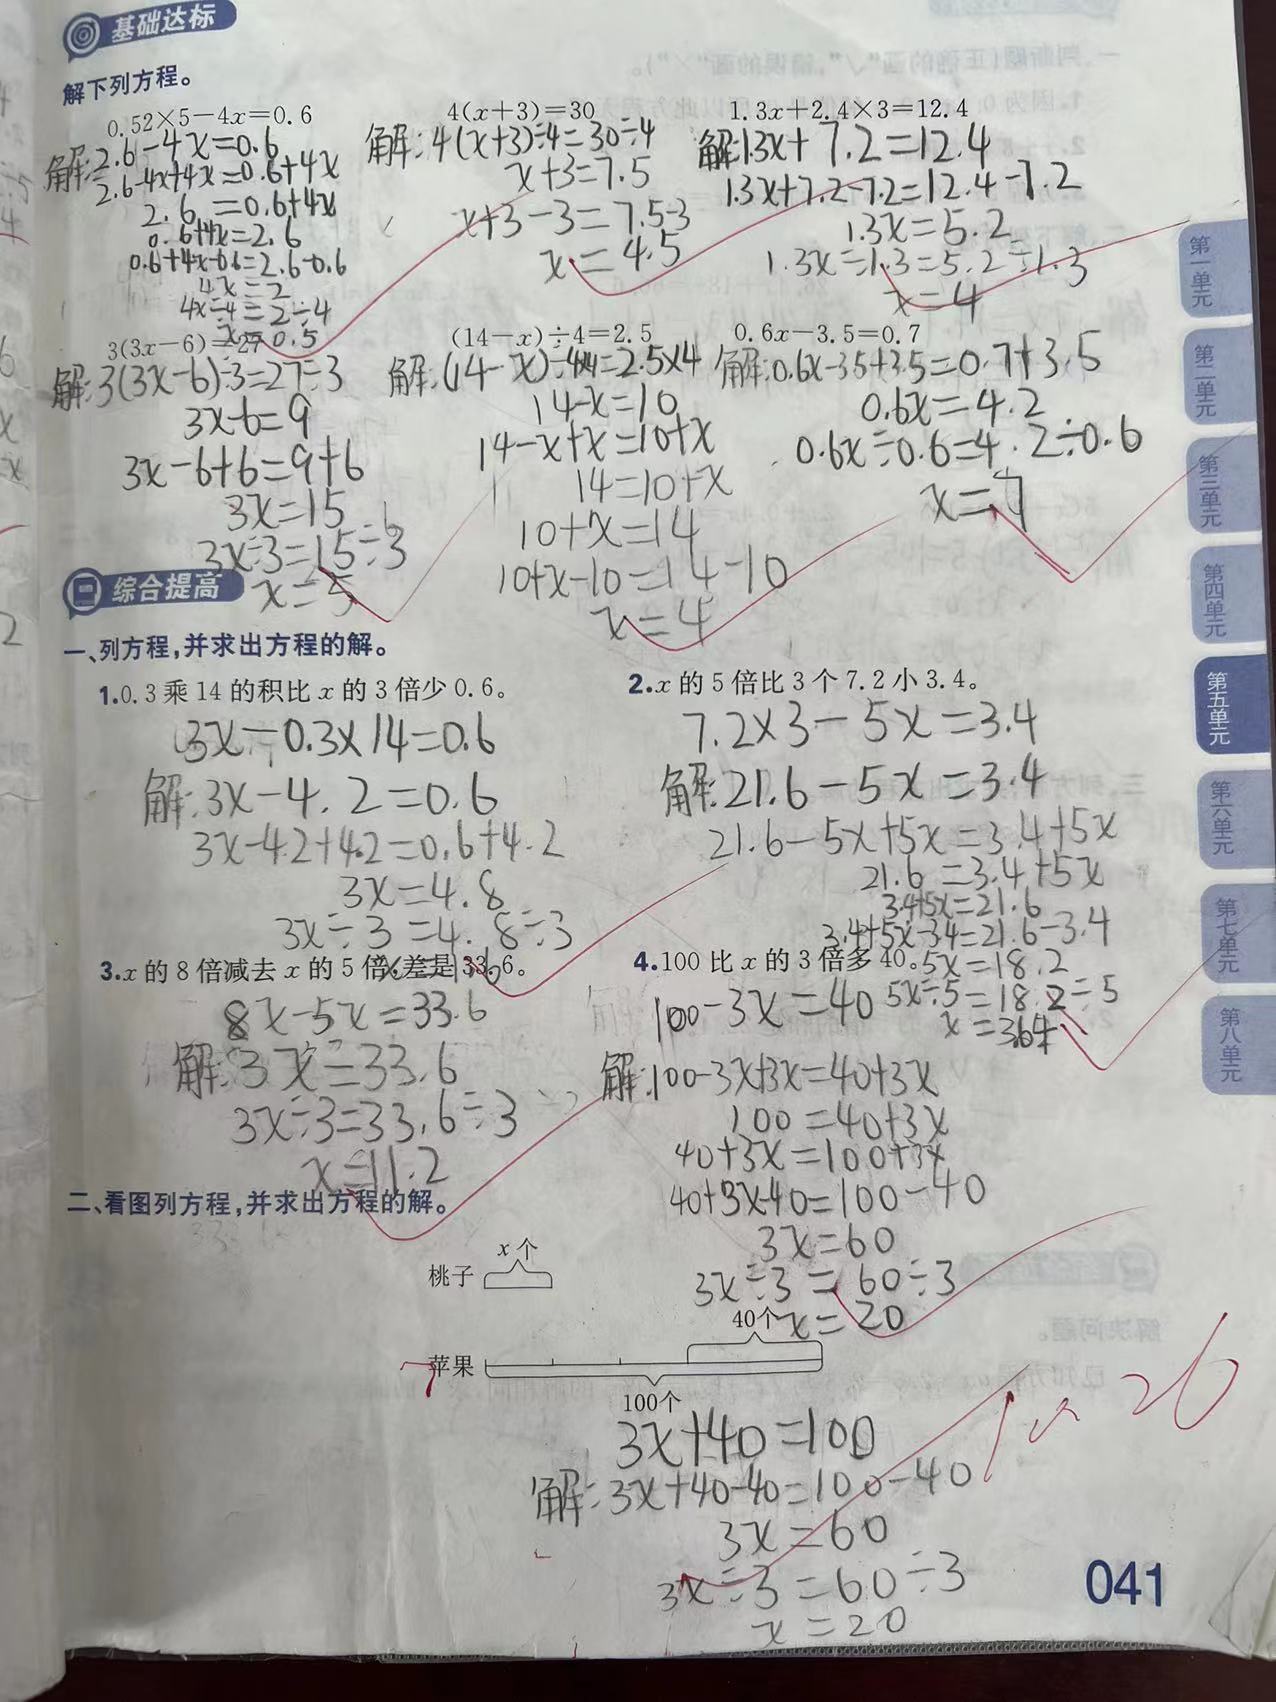 基础达标
解下列方程。
0.52×5-4x=0.6
解:2.6-4x=0.6
2.6-4x+4x=0.6+4x
2.6=0.6+4x
0.6+4x=2.6
0.6+4x-0.6=2.6-0.6
4x=2
4x÷4=2÷4
x=0.5
4(x+3)=30
解:4(x+3)÷4=30÷4
x+3=7.5
x+3-3=7.5-3
x=4.5
1.3x+2.4×3=12.4
解:1.3x+7.2=12.4
1.3x+7.2-7.2=12.4-7.2
1.3x=5.2
1.3x÷1.3=5.2÷1.3
x=4
3(3x-6)=27
解:3(3x-6)÷3=27÷3
3x-6=9
3x-6+6=9+6
3x=15
3x÷3=15÷3
x=5
(14-x)÷4=2.5
解:(14-x)÷4×4=2.5×4
14-x=10
14-x+x=10+x
14=10+x
10+x=14
10+x-10=14-10
x=4
0.6x-3.5=0.7
解:0.6x-3.5+3.5=0.7+3.5
0.6x=4.2
0.6x÷0.6=4.2÷0.6
x=7
综合提高
一、列方程,并求出方程的解。
1.0.3乘14的积比x的3倍少0.6。
3x-0.3×14=0.6
解:3x-4.2=0.6
3x-4.2+4.2=0.6+4.2
3x=4.8
3x÷3=4.8÷3
x=1.6
2.x的5倍比3个7.2小3.4。
7.2×3-5x=3.4
解:21.6-5x=3.4
21.6-5x+5x=3.4+5x
21.6=3.4+5x
3.4+5x=21.6
3.4+5x-3.4=21.6-3.4
5x=18.2
5x÷5=18.2÷5
x=3.64
3.x的8倍减去x的5倍,差是33.6。
8x-5x=33.6
解:3x=33.6
3x÷3=33.6÷3
x=11.2
4.100比x的3倍多40。
100-3x=40
解:100-3x+3x=40+3x
100=40+3x
40+3x=100+3x
40+3x-40=100-40
3x=60
3x÷3=60÷3
x=20
二、看图列方程,并求出方程的解。
x个
桃子
40个
苹果
100个
3x+40=100
解:3x+40-40=100-40
3x=60
3x÷3=60÷3
x=20
041
第一单元
第二单元
第三单元
第四单元
第五单元
第六单元
第七单元
第八单元